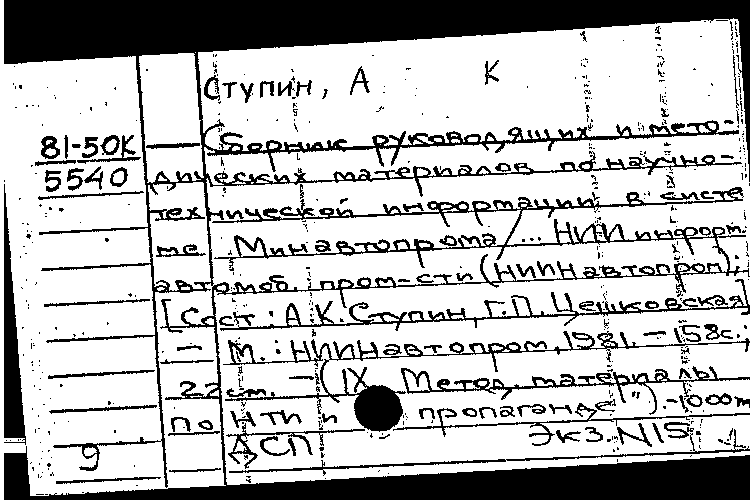 Ступин, А К
81-50К — Сборник руководящих и мето-
5540 дических материалов по научно-
технической информации в систе
ме Минавтопрома / ... НИИ информ.
автомоб. пром-сти (НИИНавтопром);
[Сост.: А.К. Ступин, Г.П. Цешковская]
— М.: НИИНавтопром, 1981. — 158с.;
22 см. — (IX Метод. материалы
по НТИ и пропаганде"). -1000т
9 ДСП Экз. N15.